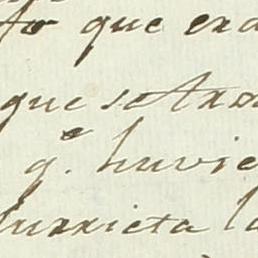 to que era
que se trax
q.e huvie
urrieta la